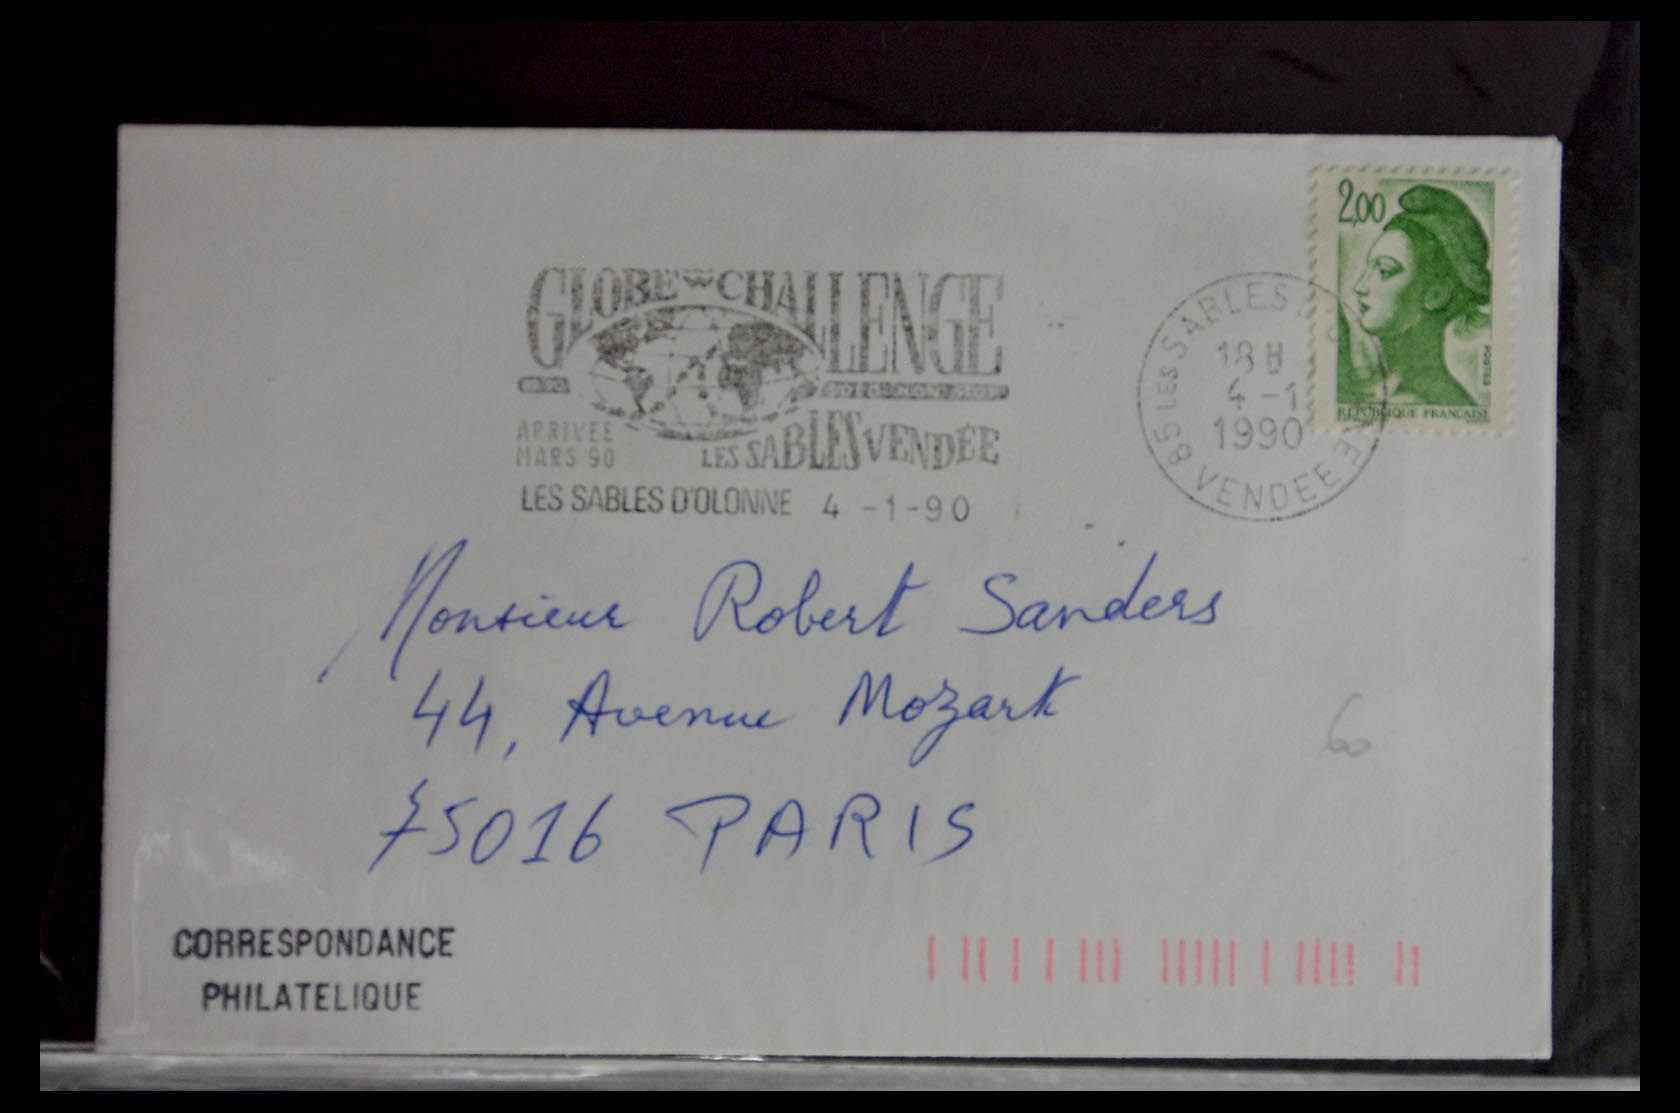 2,00
POSTES
REPUBLIQUE FRANCAISE
GLOBE CHALLENGE
ARRIVEE
MARS 90
LES SABLES VENDÉE
LES SABLES D'OLONNE 4 -1-90
85 LES SABLES
18 H
4 -1
1990
VENDEE
Monsieur Robert Sanders
44, Avenue Mozart
75016 PARIS
60
CORRESPONDANCE
PHILATELIQUE